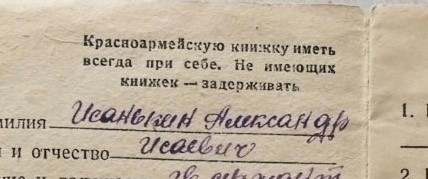 Красноармейскую книжку иметь
всегда при себе. Не имеющих
книжек — задерживать
милия Исанькин Александр
1.
и и отчество Исаевич
2.